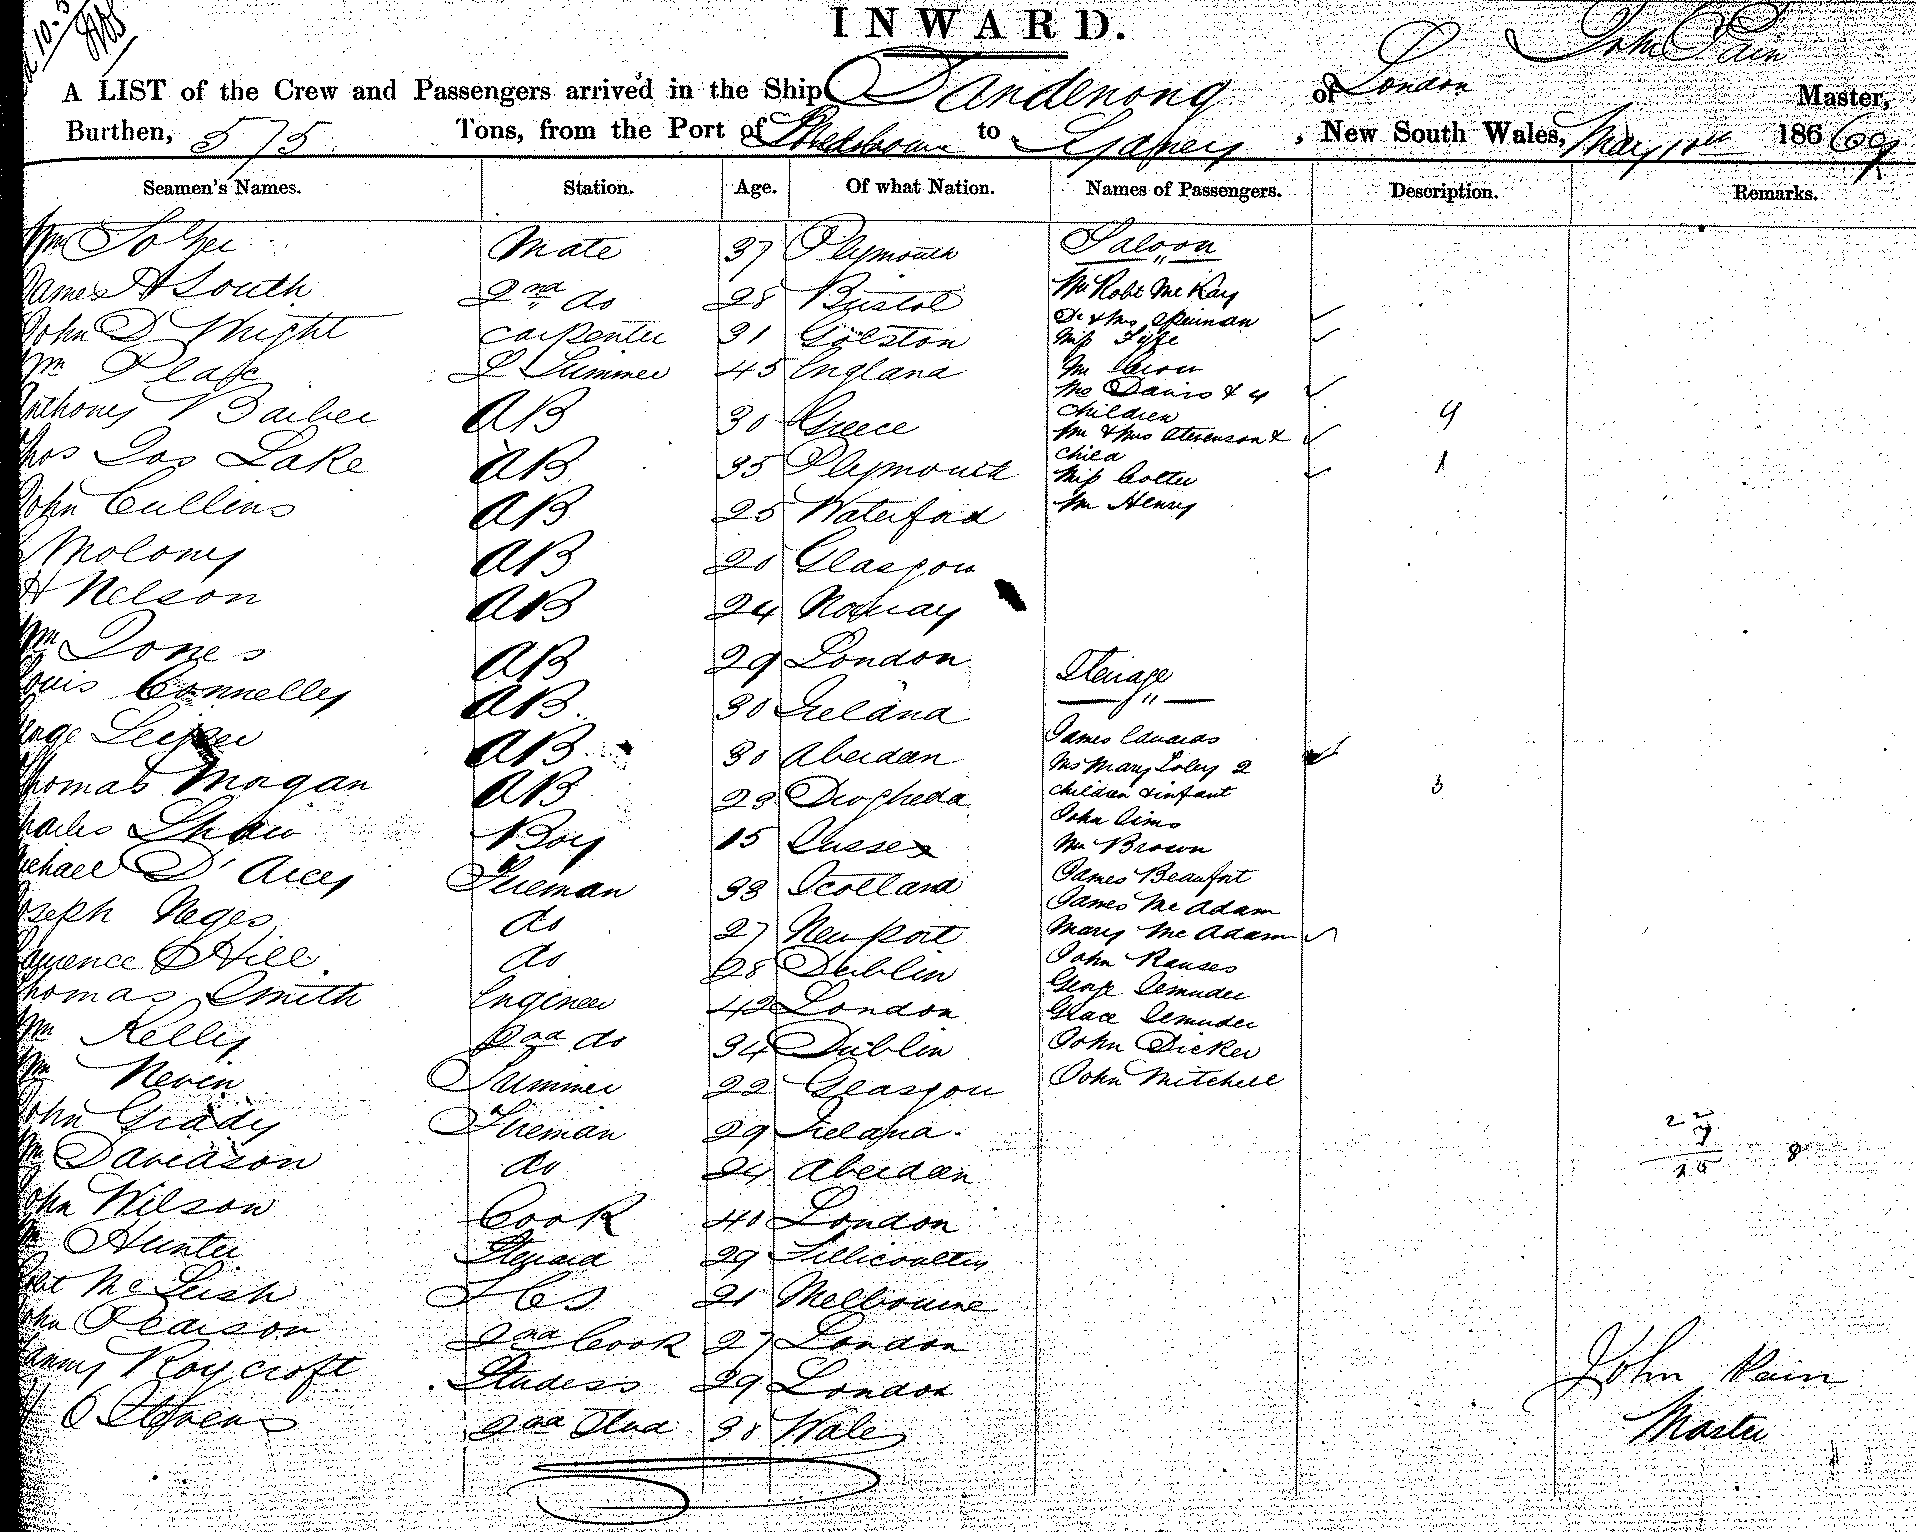 INWARD.
John Pain
A LIST of the Crew and Passengers arrived in the Ship Dandenong of London Master,
Burthen, 575 Tons, from the Port of Melbourne to Sydney, New South Wales, May 10th 18669
Seamen's Names. Station. Age. Of what Nation. Names of Passengers. Description. Remarks.
Wm Mate 37 Plymouth Saloon
James H South 2nd do 28 Bristol Mr Robt McKay
John D Wright Carpenter 31 Golston Dr & Mrs
Wm Pease L Trimmer 45 England Miss Fyfe
Mr
Mrs Davis & 4
Anthony Barber AB 30 Greece children 4
Mr & Mrs Stevenson &
Thos Jos Lake AB 35 Plymouth child 1
Miss Cotter
John Cullins AB 25 Waterford Mr Henry
Molony AB 20 Glasgow
H Nelson AB 24 Norway
Wm Jones AB 29 London
Steerage
Louis Connelly AB 30 Ireland
George Leiper AB 30 Aberdeen James Edwards
Mrs Mary Foley 2
Thomas Mogan AB 23 Drogheda children & infant 3
John Sims
Charles Shaw Boy 15 Sussex Mr Brown
Michael D'Arcy Fireman 33 Scotland James Beaufort
James McAdam
Joseph Neges do 27 Newport Mary McAdam
Lawrence Hill do 28 Dublin John
Thomas Smith Engineer 42 London George
Grace
Wm Kelly 2nd do 34 Dublin John Dicker
Wm Nevin Trimmer 22 Glasgow John Mitchell
John Grady Fireman 29 Ireland
22
7
15 8
Wm Davidson do 24 Aberdeen
John Wilson Cook 40 London
Wm Hunter Steward 29 Tillicoultry
Robt McLeish FCS 21 Melbourne
John Pearson 2nd Cook 27 London
Fanny Roycroft Studess 29 London
H O Stevens 2nd Stud 38 Wales
John Pain
Master